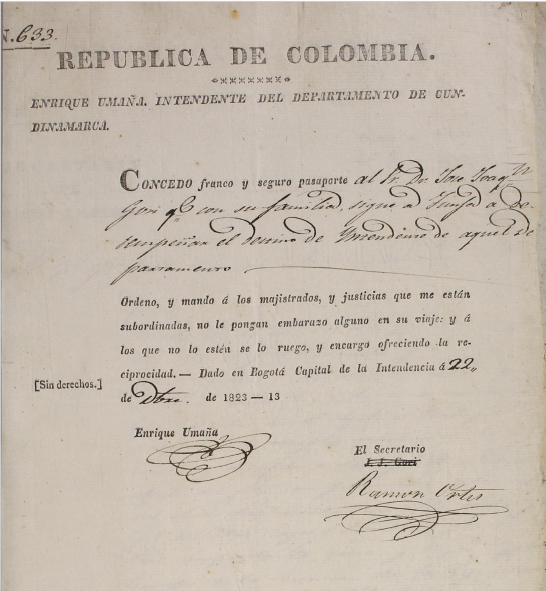 N. 633.
REPUBLICA DE COLOMBIA.
ENRIQUE UMAÑA. INTENDENTE DEL DEPARTAMENTO DE CUN-
DINAMARCA.
CONCEDO franco y seguro pasaporte al Sr. Dr. Jose Joaqn
Gori qe con su familia, sigue a Tunja a de-
sempeñar el destino de Yntendente de aquel de-
partamento
Ordeno, y mando á los majistrados, y justicias que me están
subordinadas, no le pongan embarazo alguno en su viaje: y á
los que no lo estén se lo ruego, y encargo ofreciendo la re-
ciprocidad. — Dado en Bogotá Capital de la Intendencia á 22,,
[Sin derechos.]
de Dbre. de 1823 — 13
Enrique Umaña
El Secretario
J. J. Gori
Ramon Ortis